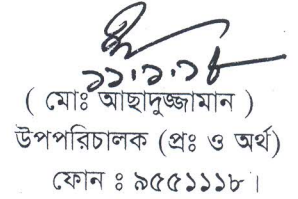 ১১.১.১৮
( মোঃ আছাদুজ্জামান )
উপপরিচালক (প্রঃ ও অর্থ)
ফোন ঃ ৯৫৫১১১৮।